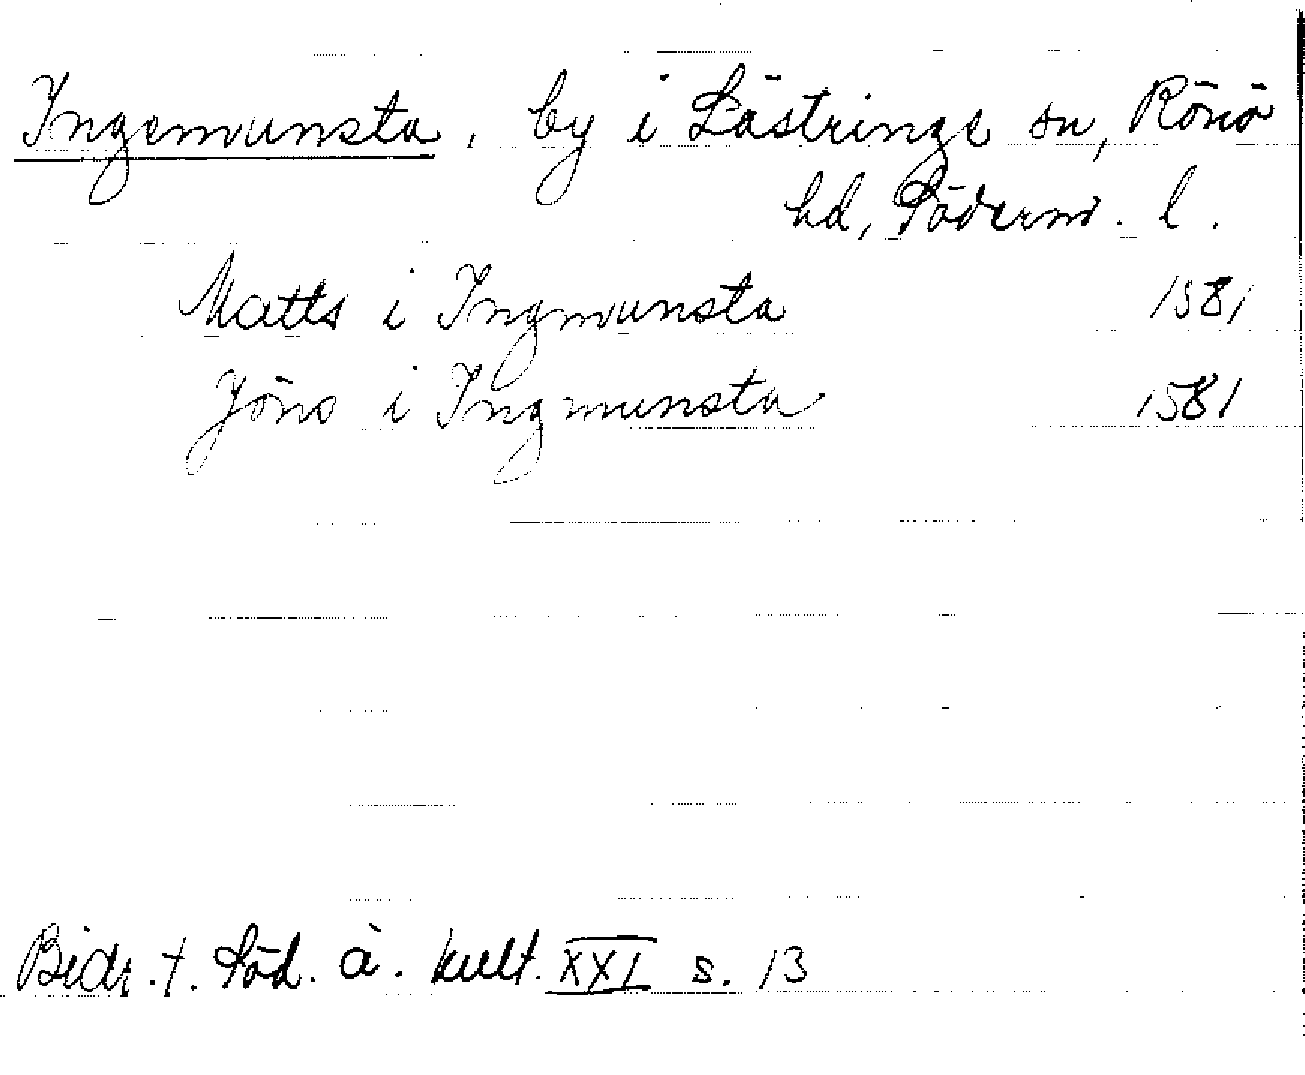 Ingemunsta, by i Lästringe sn, Rönö
hd, Söderm. l.
Matts i Ingmunsta 1581
Jöns i Ingmunsta 1581
Bidr. t. Söd. ä. kult. XXI s. 13